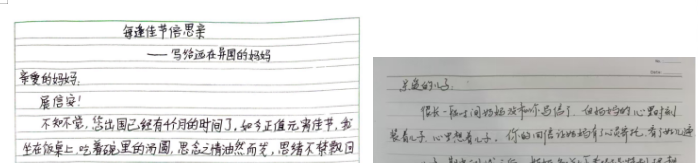 每逢佳节倍思亲
——写给远在异国的妈妈
亲爱的妈妈:
展信安!
不知不觉,您出国已经有4个月的时间了,如今正值元宵佳节,我
坐在饭桌上,吃着碗里的汤圆,思念之情油然而生,思绪不禁飘回
亲爱的儿子:
很长一段时间妈妈没有和你写信了,但妈妈的心里时刻
装着儿子,心里想着儿子,你的回信让妈妈有了心灵寄托,有了